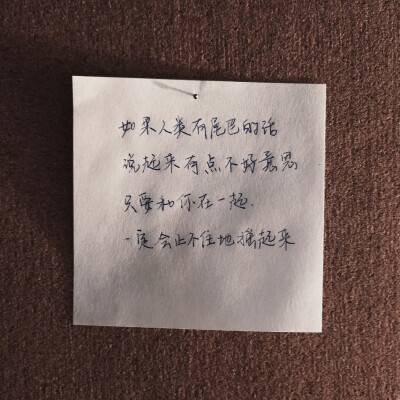 如果人类有尾巴的话
说起来有点不好意思
只要和你在一起.
一定会止不住地摇起来